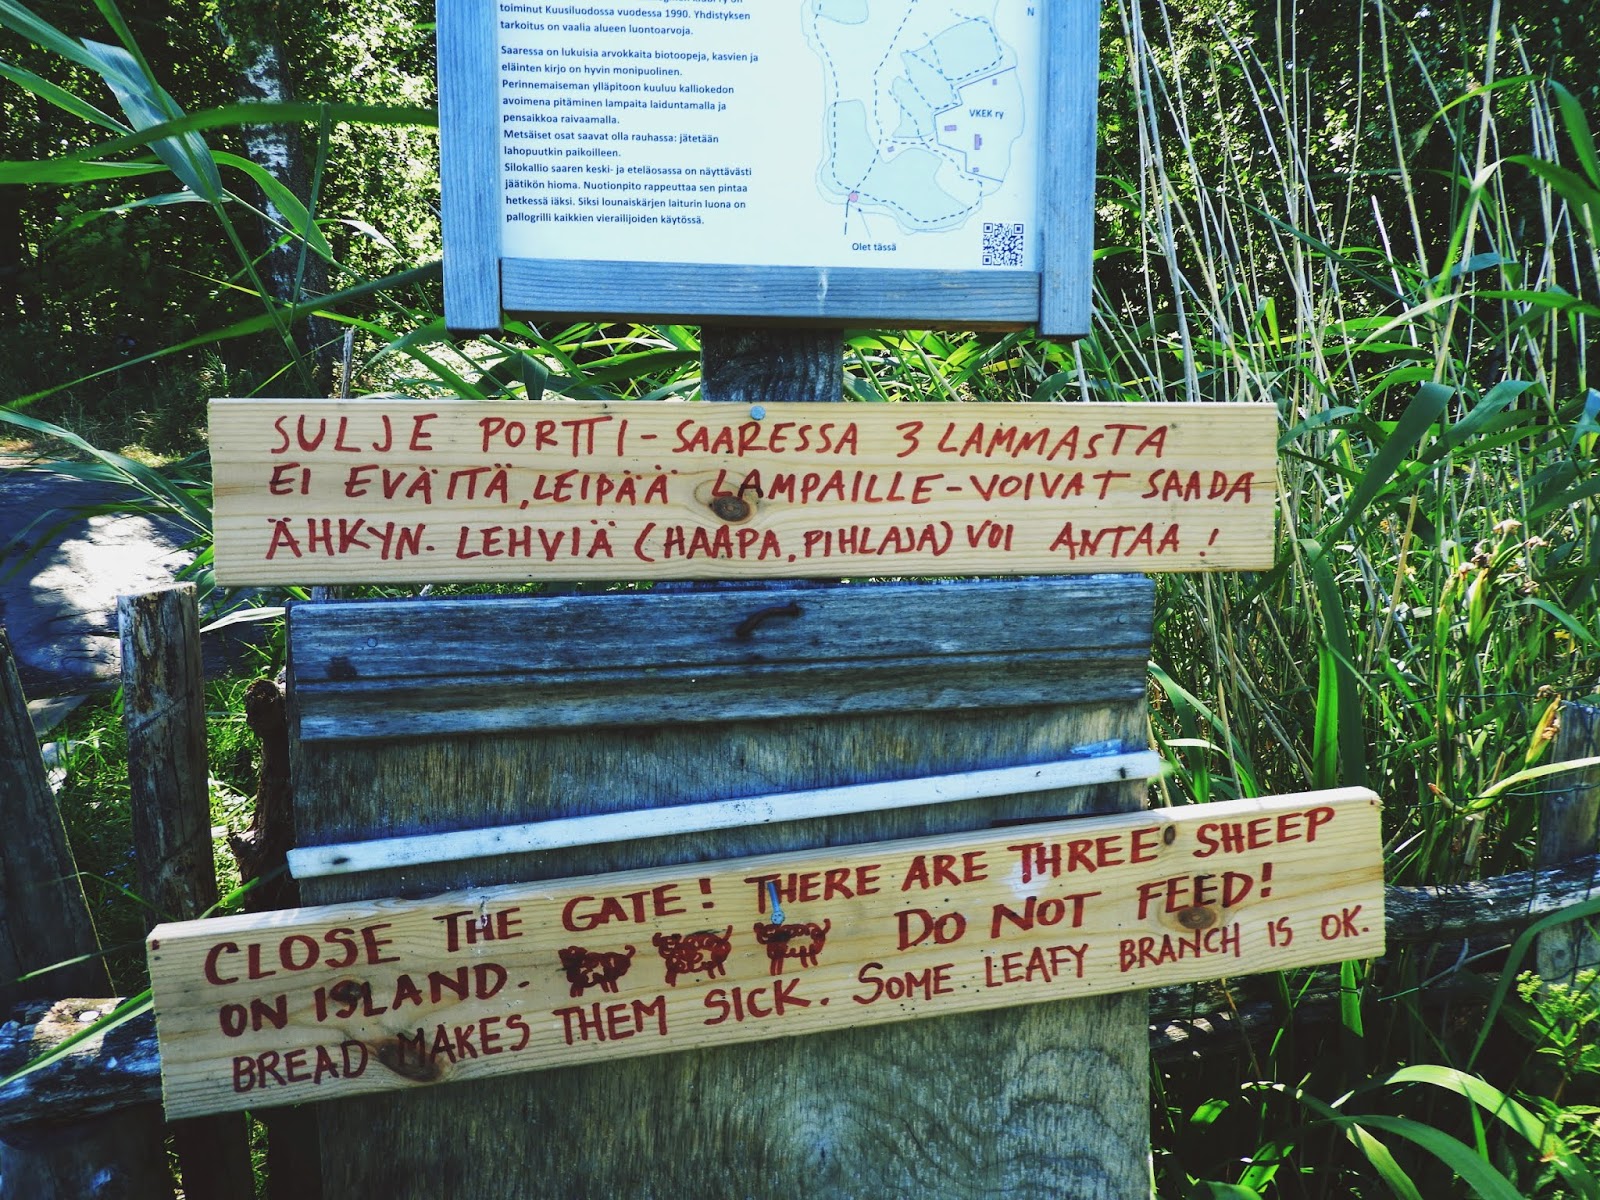 toiminut Kuusiluodossa vuodessa 1990. Yhdistyksen
tarkoitus on vaalia alueen luontoarvoja.
Saaressa on lukuisia arvokkaita biotoopeja, kasvien ja
eläinten kirjo on hyvin monipuolinen.
Perinnemaiseman ylläpitoon kuuluu kalliokedon
avoimena pitäminen lampaita laiduntamalla ja
pensaikkoa raivaamalla.
Metsäiset osat saavat olla rauhassa: jätetään
lahopuutkin paikoilleen.
Silokallio saaren keski- ja eteläosassa on näyttävästi
jäätikön hioma. Nuotionpito rappeuttaa sen pintaa
hetkessä iäksi. Siksi lounaiskärjen laiturin luona on
pallogrilli kaikkien vierailijoiden käytössä.
N
VKEK ry
Olet tässä
SULJE PORTTI - SAARESSA 3 LAMMASTA
EI EVÄITÄ, LEIPÄÄ LAMPAILLE - VOIVAT SAADA
ÄHKYN. LEHVIÄ (HAAPA, PIHLAJA) VOI ANTAA!
CLOSE THE GATE! THERE ARE THREE SHEEP
ON ISLAND. DO NOT FEED!
BREAD MAKES THEM SICK. SOME LEAFY BRANCH IS OK.